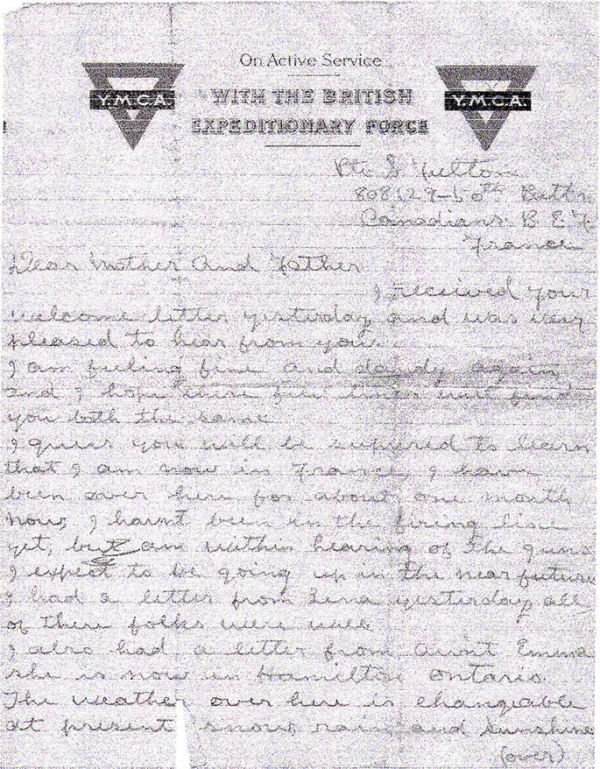 On Active Service
Y.M.C.A. WITH THE BRITISH Y.M.C.A.
EXPEDITIONARY FORCE
Pte S Fulton
808129-50th Battn
Canadians B E F
France
Dear Mother And Father
I received your
welcome letter yesterday and was very
pleased to hear from you.
I am feeling fine and dandy again
and I hope these few lines will find
you both the same
I guess you will be suprised to learn
that I am now in France, I have
been over here for about one month
now, I havnt been in the firing line
yet, but am within hearing of the guns
I expect to be going up in the near future
I had a letter from Lena yesterday all
of there folks were well
I also had a letter from aunt Emma
she is now in Hamilton Ontario.
The weather over here is changeable
at present snow, rain and sunshine
(over)